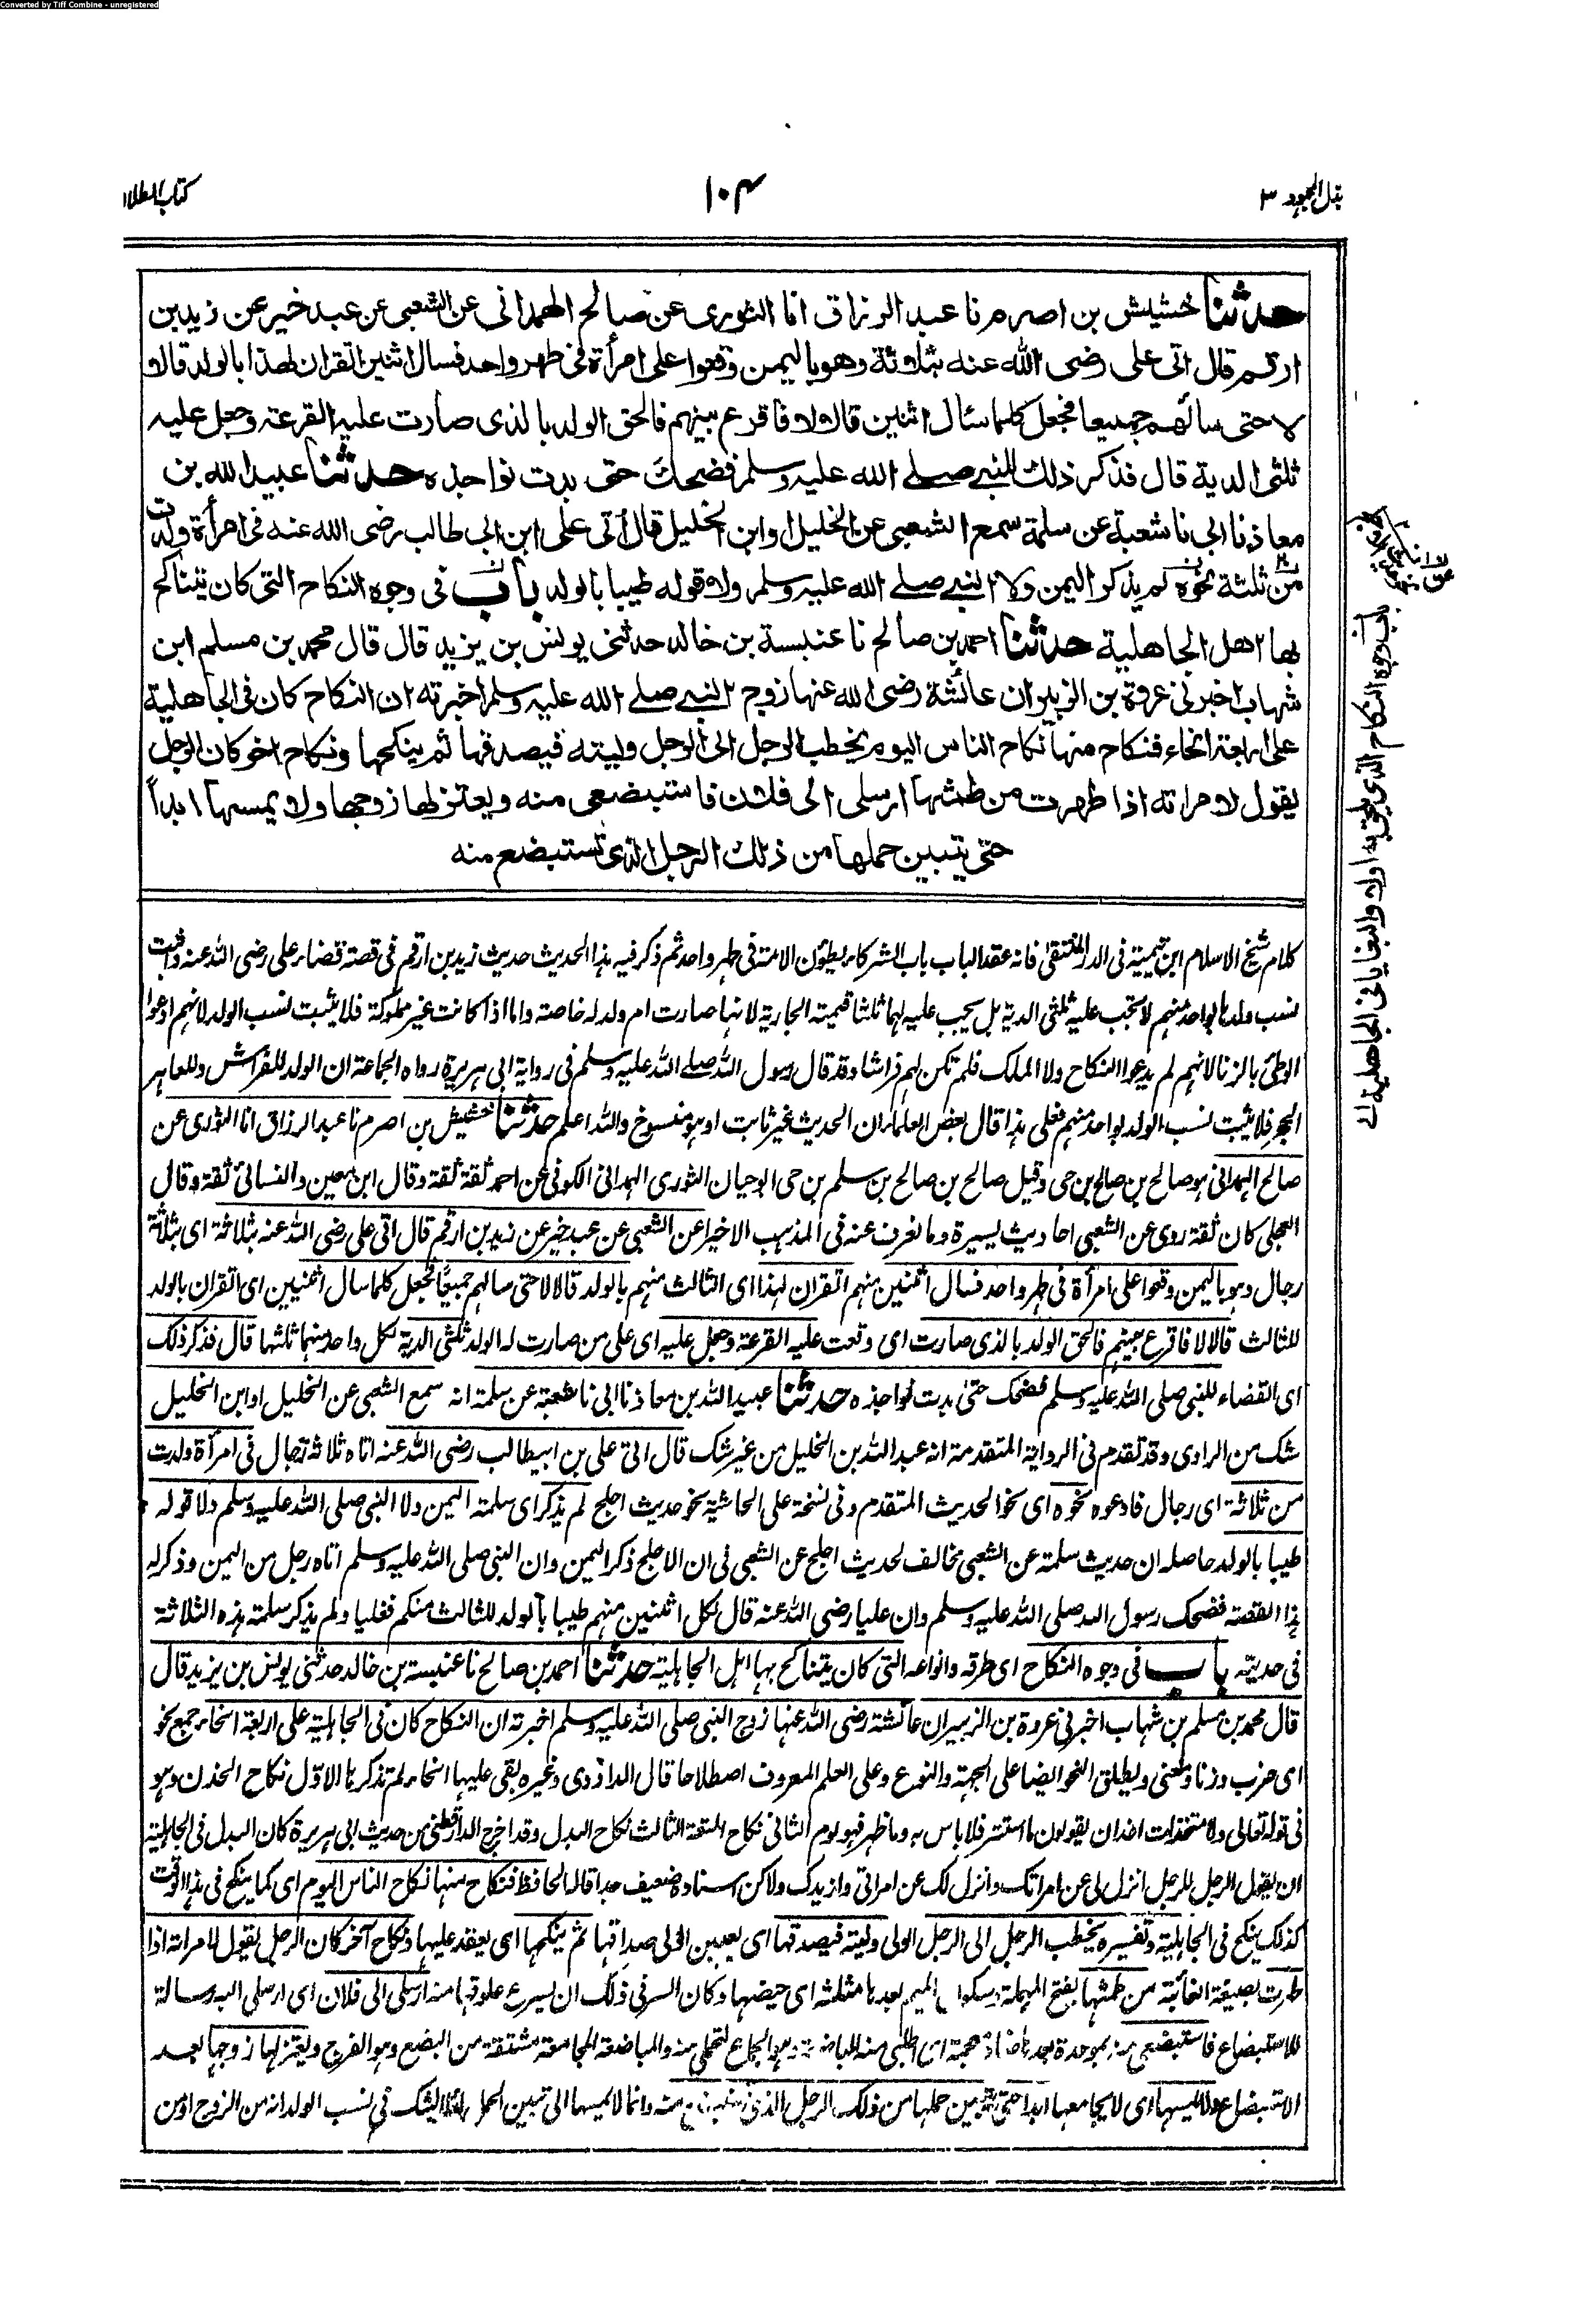 Converted by Tiff Combine - unregistered
بذل المجهود ٣
١٠٤
كتاب الطلا
حدثنا خشيش بن اصرم نا عبد الرزاق انا الثورى عن صالح الهمدانى عن الشعبى عن عبد خير عن زيد بن
ارقم قال اتى على رضى الله عنه بثلاثة وهو باليمن وقعوا على امرأة فى طهر واحد فسال اثنين اتقران لهذا بالولد قالا
لا حتى سألهم جميعا فجعل كلما سئال اثنين قالا لا فاقرع بينهم فالحق الولد بالذى صارت عليه القرعة وجعل عليه
ثلثى الدية قال فذكر ذلك للنبى صلى الله عليه وسلم فضحك حتى بدت نواجذه حدثنا عبيد الله بن
معاذ نا ابى نا شعبة عن سلمة سمع الشعبى عن الخليل او ابن الخليل قال أتى على ابن ابى طالب رضى الله عنه فى امرأة ولدت
من ثلثة نحوه لم يذكر اليمن ولا النبى صلى الله عليه وسلم ولا قوله طيبا بالولد باب فى وجوه النكاح التى كان يتناكح
بها اهل الجاهلية حدثنا احمد بن صالح نا عنبسة بن خالد حدثنى يونس بن يزيد قال قال محمد بن مسلم ابن
شهاب اخبرنى عروة بن الزبير ان عائشة رضى الله عنها زوج النبى صلى الله عليه وسلم اخبرته ان النكاح كان فى الجاهلية
على اربعة انحاء فنكاح منها نكاح الناس اليوم يخطب الرجل الى الرجل وليته فيصدقها ثم ينكحها ونكاح اخر كان الرجل
يقول لامراته اذا طهرت من طمثها ارسلى الى فلان فاستبضعى منه ويعتزلها زوجها ولا يمسها ابدا
حتى يتبين حملها من ذلك الرجل الذى تستبضع منه
كلام شيخ الاسلام ابن تيمية فى الدر المنتقى فانه عقد الباب باب الشركاء يطؤن الامة فى طهر واحد ثم ذكر فيه هذا الحديث حديث زيد بن ارقم فى قصة قضاء على رضى الله عنه وثبت
نسب ولدها بواحد منهم لا تجب عليه ثلثى الدية بل يجب عليه لهما ثلثا قيمة الجارية لانها صارت ام ولد له خاصة واما اذا كانت غير مملوكة فلا يثبت نسب الولد لانهم ادعوا
الوطئ بالزنا لانهم لم يدعوا النكاح ولا الملك فلم تكن لهم فراشا وقد قال رسول الله صلى الله عليه وسلم فى رواية ابى هريرة رواه الجماعة ان الولد للفراش وللعاهر
الحجر فلا يثبت نسب الولد بواحد منهم فعلى هذا قال بعض العلماء ان الحديث غير ثابت او هو منسوخ والله اعلم حدثنا خشيش بن اصرم نا عبد الرزاق انا الثورى عن
صالح الهمدانى هو صالح بن صالح بن حى وقيل صالح بن صالح بن مسلم بن حى ابو حيان الثورى الهمدانى الكوفى عن احمد ثقة ثقة وقال ابن معين والنسائى ثقة وقال
العجلى كان ثقة روى عن الشعبى احاديث يسيرة وما نعرف عنه فى المذهب الا خيرا عن الشعبى عن عبد خير عن زيد بن ارقم قال اتى على رضى الله عنه بثلاثة اى بثلاثة
رجال وهو باليمن وقعوا على امرأة فى طهر واحد فسال اثنين منهم اتقران لهذا اى الثالث منهم بالولد قالا لا حتى سالهم جميعا فجعل كلما سال اثنين اى اتقران بالولد
للثالث قالا لا فاقرع بينهم فالحق الولد بالذى صارت اى وقعت عليه القرعة وجعل عليه اى على من صارت له الولد ثلثى الدية لكل واحد منهما ثلثها قال فذكر ذلك
اى القضاء للنبى صلى الله عليه وسلم فضحك حتى بدت نواجذه حدثنا عبيد الله بن معاذ نا ابى نا شعبة عن سلمة انه سمع الشعبى عن الخليل او ابن الخليل
شك من الراوى وقد تقدم فى الرواية المتقدمة انه عبد الله بن الخليل من غير شك قال اتى على بن ابيطالب رضى الله عنه اتاه ثلاثة رجال فى امرأة ولدت
من ثلاثة اى رجال فادعوه نحوه اى نحو الحديث المتقدم وفى نسخة على الحاشية نحو حديث اجلح لم يذكر اى سلمة اليمن ولا النبى صلى الله عليه وسلم ولا قوله
طيبا بالولد حاصله ان حديث سلمة عن الشعبى مخالف لحديث اجلح عن الشعبى فى ان الاجلح ذكر اليمن وان النبى صلى الله عليه وسلم اتاه رجل من اليمن وذكر له
هذا القصة فضحك رسول الله صلى الله عليه وسلم وان عليا رضى الله عنه قال لكل اثنين منهم طيبا بالولد للثالث منكم فغليا ولم يذكر سلمة هذه الثلاثة
فى حديثه باب فى وجوه النكاح اى طرقه وانواعه التى كان يتناكح بها اهل الجاهلية حدثنا احمد بن صالح نا عنبسة بن خالد حدثنى يونس بن يزيد قال
قال محمد بن مسلم بن شهاب اخبرنى عروة بن الزبير ان عائشة رضى الله عنها زوج النبى صلى الله عليه وسلم اخبرته ان النكاح كان فى الجاهلية على اربعة انحاء جمع نحو
اى ضرب وزنا ومعنى ويطلق النحو ايضا على الجهة والنوع وعلى العلم المعروف اصطلاحا قال الداؤدى وغيره بقى عليها انحاء لم تذكرها الاول نكاح الخدن وهو
فى قوله تعالى ولا متخذات اخدان يقولون ما استتر فلا باس به وما ظهر فهو لوم الثانى نكاح المتعة الثالث نكاح البدل وقد اخرج الدارقطنى من حديث ابى هريرة كان البدل فى الجاهلية
ان يقول الرجل للرجل انزل لى عن امراتك وانزل لك عن امراتى وازيدك ولاكن اسناده ضعيف جدا قاله الحافظ فنكاح منها نكاح الناس اليوم اى كما ينكح فى هذا الوقت
كذلك ينكح فى الجاهلية وتفسيره يخطب الرجل الى الرجل الولى وليته فيصدقها اى يعين الولى صداقها ثم ينكحها اى يعقد عليها ونكاح آخر كان الرجل يقول لامراته اذا
طهرت بصيغة الغائبة من طمثها بفتح المهملة وسكون الميم بعدها مثلثة اى حيضها وكان السر فى ذلك ان يسرع علوقها منه ارسلى الى فلان اى ارسلى اليه رسالة
للاستبضاع فاستبضعى منه بموحدة بعدها ضاد معجمة اى اطلبى منه المباضعة وهو الجماع لتحملى منه والمباضعة المجامعة مشتقة من البضع وهو الفرج ويعتزلها زوجها بعد
الاستبضاع ولا يمسها اى لا يجامعها ابدا حتى يتبين حملها من ذلك الرجل الذى تستبضع منه وانما لا يمسها الى تبين الحمل لئلا الشك فى نسب الولد انه من الزوج او من
باب وجوه النكاح الذى يلحق به اولاد البغايا فى الجاهلية